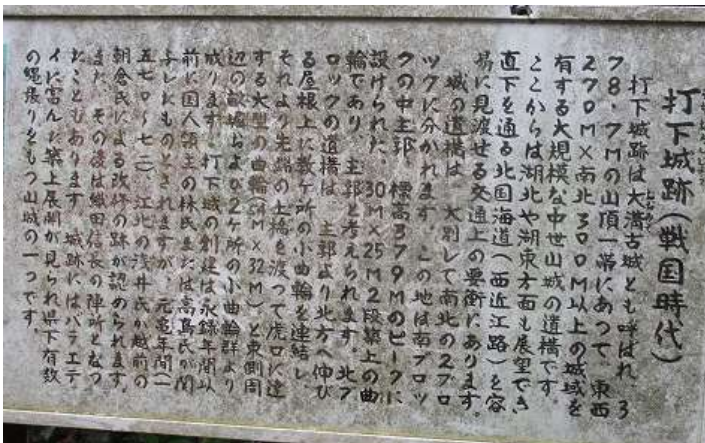 打下城跡(戦国時代)
打下城跡は大溝古城とも呼ばれ、3
78.7Mの山頂一帯にあって、東西
270M×南北300M以上の城域を
有する大規模な中世山城の遺構です。
ここからは湖北や湖東方面も展望でき、
直下を通る北国海道(西近江路)を容
易に見渡せる交通上の要衝にあります。
城の遺構は、大別して南北の2ブロ
ックに分かれます。この地は南ブロッ
クの中主郭、標高379Mのピークに
設けられた、30M×25M2段築上の曲
輪であり、主郭と考えられます。北ブ
ロックの遺構は、主郭より北方へ伸び
る尾根上に数ケ所の小曲輪を連結し、
それより先端の土橋を渡って虎口に達
する大型の曲輪(54M×32M)と東側周
辺の畝堀および2ケ所の小曲輪群より
成ります。打下城の創建は永録年間以
前に国人領主の林氏または高島氏が関
与したものとされますが、元亀年間(一
五七〇〜七三)江北の浅井氏か越前の
朝倉氏による改修の跡が認められます。
また、その後は織田信長の陣所となっ
たこともあります。城跡にはバラエテ
ィに富んだ築上展開が見られ県下有数
の縄張りをもつ山城の一つです。